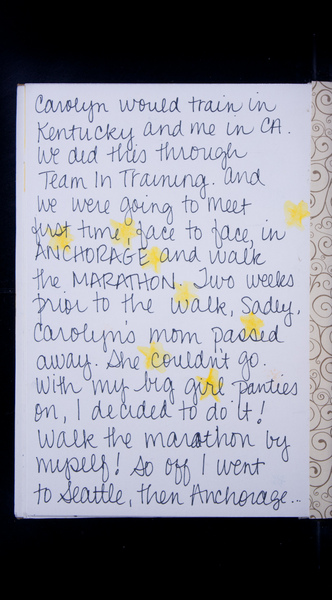 Carolyn would train in
Kentucky and me in CA.
We did this through
Team In Training. And
we were going to meet
first time, face to face, in
ANCHORAGE and walk
the MARATHON. Two weeks
prior to the walk, Sadly,
Carolyn's mom passed
away. She couldn't go.
With my big girl panties
on, I decided to do it!
Walk the marathon by
myself! So off I went
to Seattle, then Anchorage...